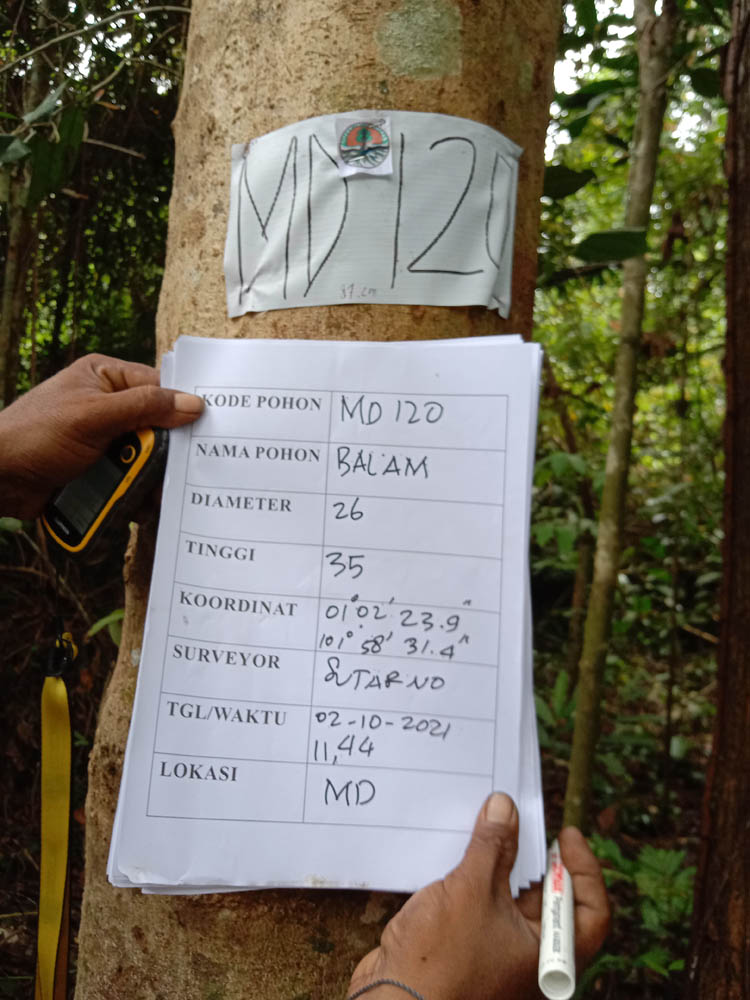 MD 120
37 cm
KODE POHON MD 120
NAMA POHON BALAM
DIAMETER 26
TINGGI 35
KOORDINAT 01° 02' 23.9"
101° 58' 31.4"
SURVEYOR SUTARNO
TGL/WAKTU 02-10-2021
11,44
LOKASI MD